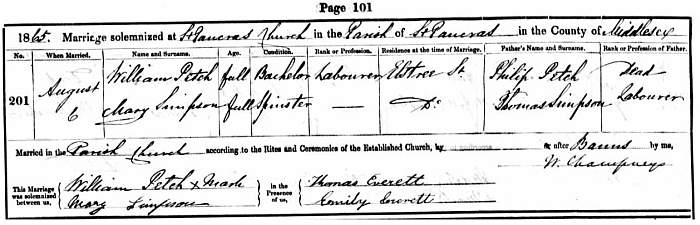 Page 101
1865. Marriage solemnized at St Pancras Church in the Parish of St Pancras in the County of Middlesex
No. When Married. Name and Surname. Age. Condition. Rank or Profession. Residence at the time of Marriage. Father's Name and Surname. Rank or Profession of Father.
August William Petch full Bachelor Labourer Elstree St Philip Petch Dead
201
6 Mary Simpson full Spinster — Do Thomas Simpson Labourer
Married in the Parish Church according to the Rites and Ceremonies of the Established Church, by or after Banns by me,
W. Champneys
This Marriage was solemnized between us, William Petch x Mark in the Presence of us, Thomas Everett
Mary Simpson Emily Everett